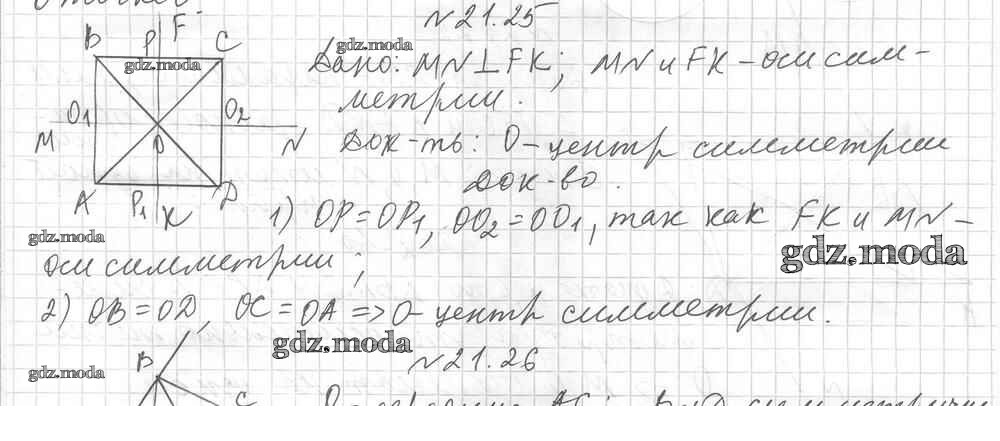 №21.25
B P F C
gdz.moda
Дано: MN⊥FK; MN и FK - оси сим-
gdz.moda
метрии.
O1 O2
M O N
Док-ть: O - центр симметрии
Док-во.
A P1 K D
1) OP=OP1, OO2=OO1, так как FK и MN -
gdz.moda
gdz.moda
оси симметрии;
2) OB=OD, OC=OA => O - центр симметрии.
gdz.moda
№21.26
B
gdz.moda
C